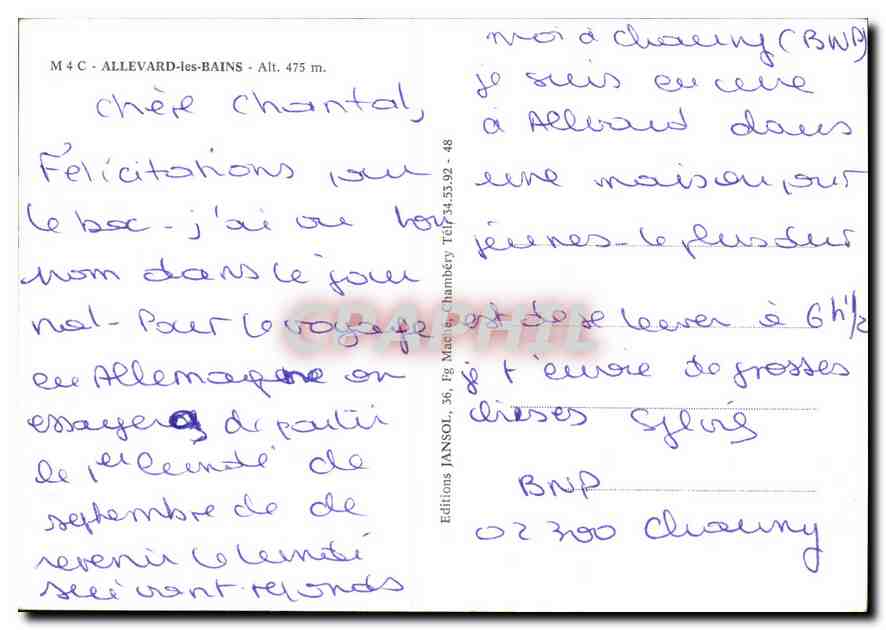 M 4 C - ALLEVARD-les-BAINS - Alt. 475 m.
Chère Chantal,
Félicitations pour
le bac - j'ai vu ton
nom dans le jour
nal - Pour le voyage
en Allemagne on
essayera de partir
le 1er lundi de
septembre de de
revenir le lundi
suivant réponds
moi à Chauny (BNP)
je suis en cure
à Allevard dans
une maison pour
jeunes - le plus dur
est de se lever à 6h1/2
je t'envoie de grosses
bises Sylvie
BNP
02300 Chauny
Editions JANSOL, 36, Fg Maché, Chambéry Tél. 34.53.92 - 48
CPAPHIL